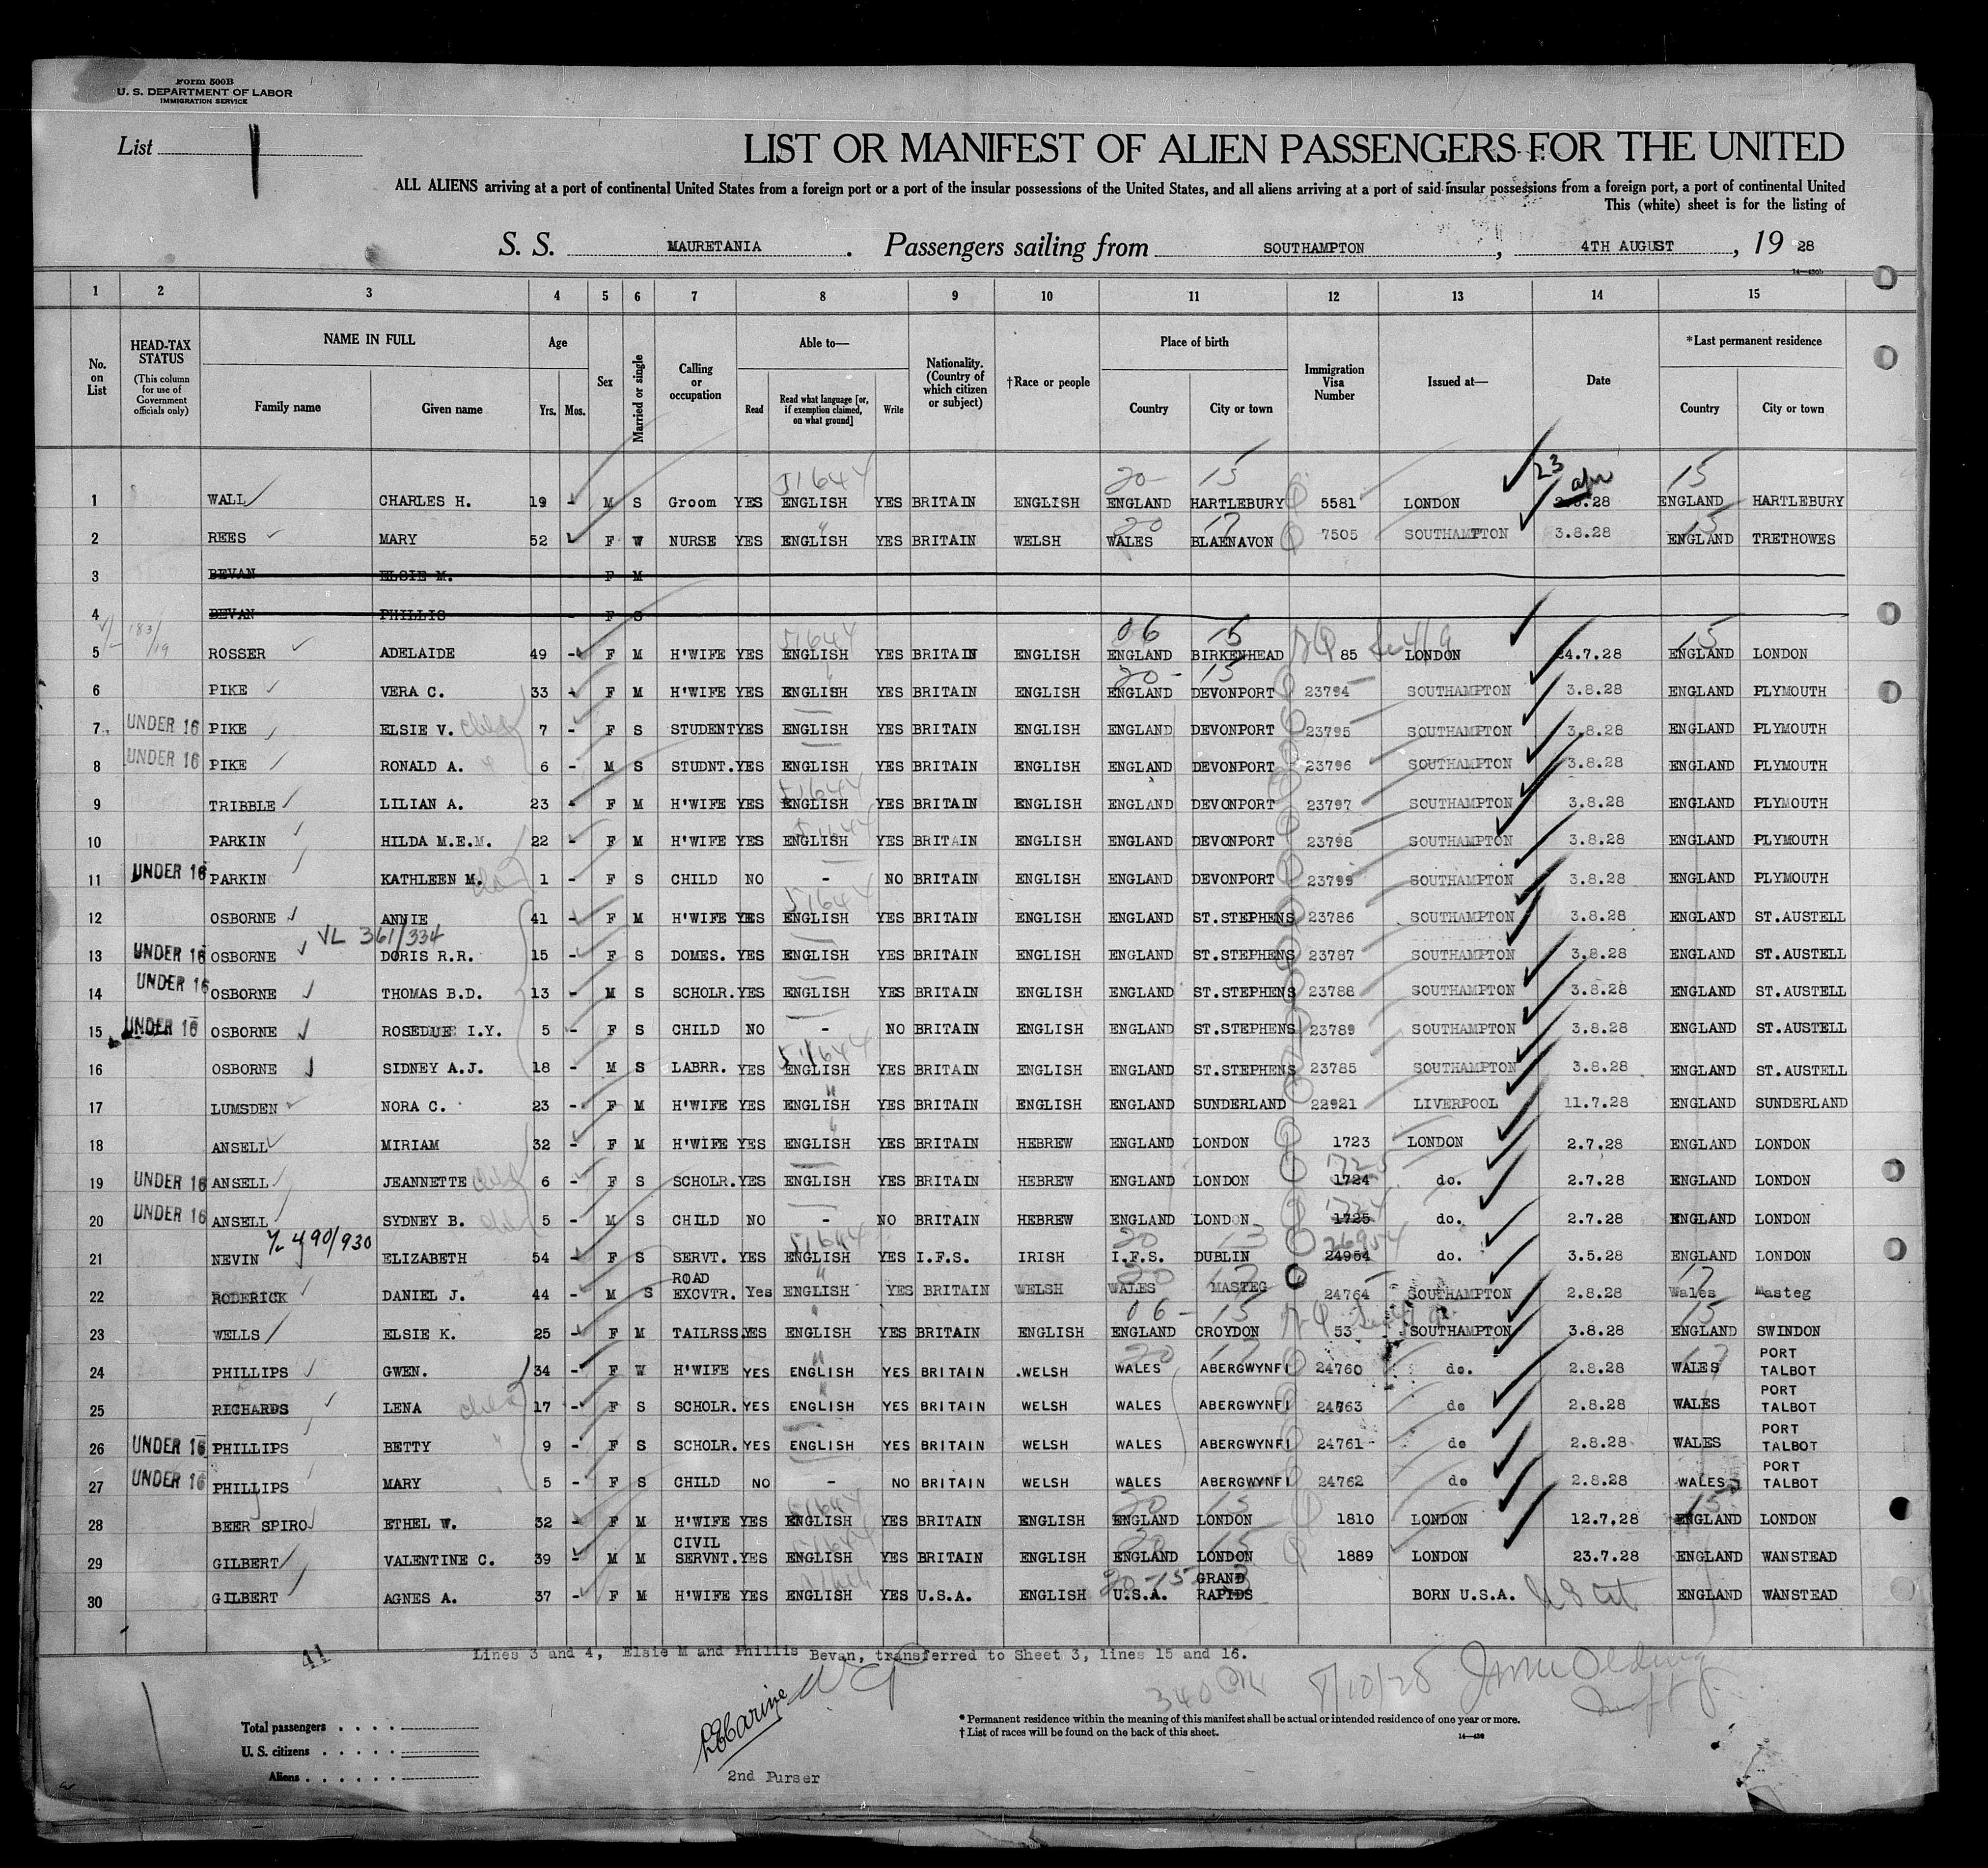 Form 500B
U. S. DEPARTMENT OF LABOR
IMMIGRATION SERVICE
List 1
LIST OR MANIFEST OF ALIEN PASSENGERS FOR THE UNITED
ALL ALIENS arriving at a port of continental United States from a foreign port or a port of the insular possessions of the United States, and all aliens arriving at a port of said insular possessions from a foreign port, a port of continental United
This (white) sheet is for the listing of
S. S. MAURETANIA. Passengers sailing from SOUTHAMPTON, 4TH AUGUST, 19 28
14—430b
1 2 3 4 5 6 7 8 9 10 11 12 13 14 15
No. on List
HEAD-TAX STATUS (This column for use of Government officials only)
NAME IN FULL
Family name
Given name
Age
Yrs.
Mos.
Sex
Married or single
Calling or occupation
Able to—
Read
Read what language [or, if exemption claimed, on what ground]
Write
Nationality. (Country of which citizen or subject)
†Race or people
Place of birth
Country
City or town
Immigration Visa Number
Issued at—
Date
*Last permanent residence
Country
City or town
51644 20- 15 23 apr 15
1 WALL CHARLES H. 19 - M S Groom YES ENGLISH YES BRITAIN ENGLISH ENGLAND HARTLEBURY 5581 LONDON .28 ENGLAND HARTLEBURY
" 20 17 15
2 REES MARY 52 F W NURSE YES ENGLISH YES BRITAIN WELSH WALES BLAENAVON 7505 SOUTHAMPTON 3.8.28 ENGLAND TRETHOWES
3 BEVAN ELSIE M. F M
4 BEVAN PHILLIS - F S
183/19 51644 06 15 15
5 ROSSER ADELAIDE 49 - F M H'WIFE YES ENGLISH YES BRITAIN ENGLISH ENGLAND BIRKENHEAD 85 LONDON 24.7.28 ENGLAND LONDON
" 20- 15
6 PIKE VERA C. 33 - F M H'WIFE YES ENGLISH YES BRITAIN ENGLISH ENGLAND DEVONPORT 23794 SOUTHAMPTON 3.8.28 ENGLAND PLYMOUTH
7 UNDER 16 PIKE ELSIE V. 7 - F S STUDENT YES ENGLISH YES BRITAIN ENGLISH ENGLAND DEVONPORT 23795 SOUTHAMPTON 3.8.28 ENGLAND PLYMOUTH
8 UNDER 16 PIKE RONALD A. 6 - M S STUDNT. YES ENGLISH YES BRITAIN ENGLISH ENGLAND DEVONPORT 23796 SOUTHAMPTON 3.8.28 ENGLAND PLYMOUTH
51644
9 TRIBBLE LILIAN A. 23 - F M H'WIFE YES ENGLISH YES BRITAIN ENGLISH ENGLAND DEVONPORT 23797 SOUTHAMPTON 3.8.28 ENGLAND PLYMOUTH
51644
10 PARKIN HILDA M.E.M. 22 - F M H'WIFE YES ENGLISH YES BRITAIN ENGLISH ENGLAND DEVONPORT 23798 SOUTHAMPTON 3.8.28 ENGLAND PLYMOUTH
11 UNDER 16 PARKIN KATHLEEN M. 1 - F S CHILD NO - NO BRITAIN ENGLISH ENGLAND DEVONPORT 23799 SOUTHAMPTON 3.8.28 ENGLAND PLYMOUTH
51644
12 OSBORNE ANNIE 41 - F M H'WIFE YES ENGLISH YES BRITAIN ENGLISH ENGLAND ST.STEPHENS 23786 SOUTHAMPTON 3.8.28 ENGLAND ST.AUSTELL
VL 361/334
13 UNDER 16 OSBORNE DORIS R.R. 15 - F S DOMES. YES ENGLISH YES BRITAIN ENGLISH ENGLAND ST.STEPHENS 23787 SOUTHAMPTON 3.8.28 ENGLAND ST.AUSTELL
14 UNDER 16 OSBORNE THOMAS B.D. 13 - M S SCHOLR. YES ENGLISH YES BRITAIN ENGLISH ENGLAND ST.STEPHENS 23788 SOUTHAMPTON 3.8.28 ENGLAND ST.AUSTELL
15 UNDER 16 OSBORNE ROSEDUE I.Y. 5 - F S CHILD NO - NO BRITAIN ENGLISH ENGLAND ST.STEPHENS 23789 SOUTHAMPTON 3.8.28 ENGLAND ST.AUSTELL
51644
16 OSBORNE SIDNEY A.J. 18 - M S LABRR. YES ENGLISH YES BRITAIN ENGLISH ENGLAND ST.STEPHENS 23785 SOUTHAMPTON 3.8.28 ENGLAND ST.AUSTELL
17 LUMSDEN NORA C. 23 - F M H'WIFE YES ENGLISH YES BRITAIN ENGLISH ENGLAND SUNDERLAND 22921 LIVERPOOL 11.7.28 ENGLAND SUNDERLAND
18 ANSELL MIRIAM 32 - F M H'WIFE YES ENGLISH YES BRITAIN HEBREW ENGLAND LONDON 1723 LONDON 2.7.28 ENGLAND LONDON
1725
19 UNDER 16 ANSELL JEANNETTE 6 - F S SCHOLR. YES ENGLISH YES BRITAIN HEBREW ENGLAND LONDON 1724 do. 2.7.28 ENGLAND LONDON
1724
20 UNDER 16 ANSELL SYDNEY B. 5 - M S CHILD NO - NO BRITAIN HEBREW ENGLAND LONDON 1725 do. 2.7.28 ENGLAND LONDON
490/930 51644 20 13 26954
21 NEVIN ELIZABETH 54 - F S SERVT. YES ENGLISH YES I.F.S. IRISH I.F.S. DUBLIN 24954 do. 3.5.28 ENGLAND LONDON
20 17 17
22 RODERICK DANIEL J. 44 - M S ROAD EXCVTR. Yes ENGLISH YES BRITAIN WELSH WALES MASTEG 24764 SOUTHAMPTON 2.8.28 Wales Masteg
06- 15 15
23 WELLS ELSIE K. 25 - F M TAILRSS. YES ENGLISH YES BRITAIN ENGLISH ENGLAND CROYDON 53 SOUTHAMPTON 3.8.28 ENGLAND SWINDON
20 17 17
24 PHILLIPS GWEN. 34 - F W H'WIFE YES ENGLISH YES BRITAIN WELSH WALES ABERGWYNFI 24760 do. 2.8.28 WALES PORT TALBOT
25 RICHARDS LENA 17 - F S SCHOLR. YES ENGLISH YES BRITAIN WELSH WALES ABERGWYNFI 24763 do 2.8.28 WALES PORT TALBOT
26 UNDER 16 PHILLIPS BETTY 9 - F S SCHOLR. YES ENGLISH YES BRITAIN WELSH WALES ABERGWYNFI 24761 do 2.8.28 WALES PORT TALBOT
27 UNDER 16 PHILLIPS MARY 5 - F S CHILD NO - NO BRITAIN WELSH WALES ABERGWYNFI 24762 do 2.8.28 WALES PORT TALBOT
51644 20 15 15
28 BEER SPIRO ETHEL W. 32 - F M H'WIFE YES ENGLISH YES BRITAIN ENGLISH ENGLAND LONDON 1810 LONDON 12.7.28 ENGLAND LONDON
51644 20 15
29 GILBERT VALENTINE C. 39 - M M CIVIL SERVNT. YES ENGLISH YES BRITAIN ENGLISH ENGLAND LONDON 1889 LONDON 23.7.28 ENGLAND WANSTEAD
20-15
30 GILBERT AGNES A. 37 - F M H'WIFE YES ENGLISH YES U.S.A. ENGLISH U.S.A. GRAND RAPIDS BORN U.S.A. ENGLAND WANSTEAD
41
Lines 3 and 4, Elsie M and Phillis Bevan, transferred to Sheet 3, lines 15 and 16.
340 8/10/28
Total passengers
U. S. citizens
Aliens
2nd Purser
* Permanent residence within the meaning of this manifest shall be actual or intended residence of one year or more.
† List of races will be found on the back of this sheet.
14—430